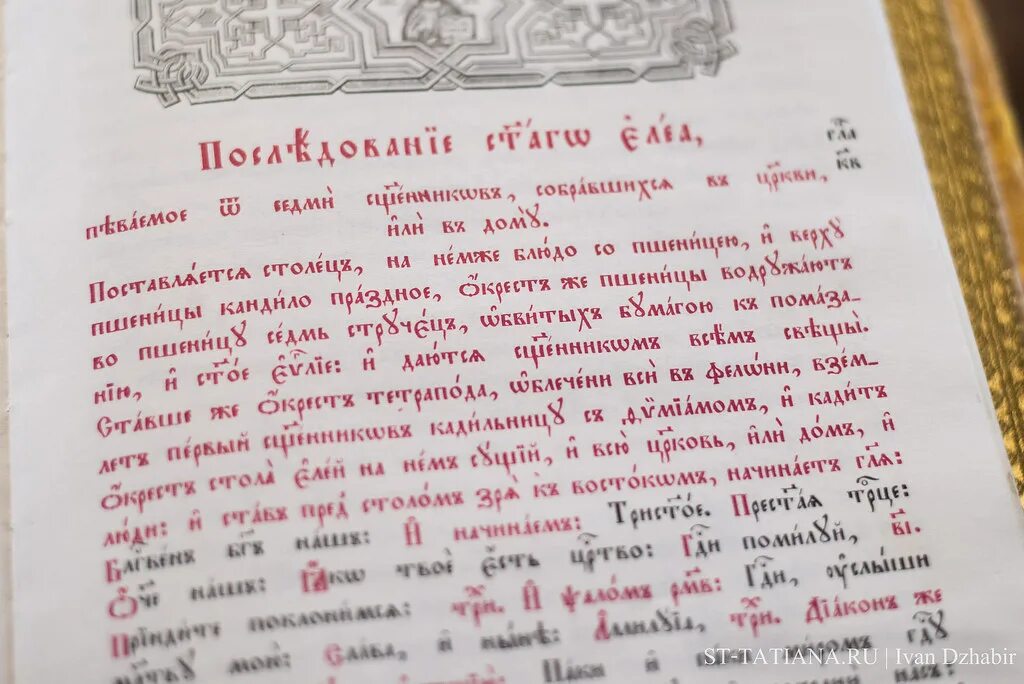 Послѣ́дованїе ст҃а́гѡ є҆ле́а,
гл҃а
к҃в
пѣва́емое ѿ седмѝ сщ҃е́нникѡвъ, собра́вшихсѧ въ цр҃кви,
и҆лѝ въ домꙋ̀.
Поставлѧ́етсѧ столе́цъ, на не́мже блю́до со пшени́цею, и҆ верхꙋ̀
пшени́цы канди́ло пра́здное, ѻ҆́крестъ же пшени́цы водрꙋжа́ютъ
во пшени́цꙋ се́дмь стрꙋче́цъ, ѡ҆бви́тыхъ бꙋма́гою къ пома́за-
нїю, и҆ ст҃о́е є҆ѵⷢ҇лїе: и҆ даю́тсѧ сщ҃е́нникѡмъ всѣ̑мъ свѣщы̀.
Ста́вше же ѻ҆́крестъ тетрапо́да, ѡ҆блече́ни всѝ въ фелѡ́ни, взе́м-
летъ пе́рвый сщ҃е́нникѡвъ кади́льницꙋ съ ѳѷмїа́момъ, и҆ кади́тъ
ѻ҆́крестъ стола̀ є҆ле́й на не́мъ сꙋ́щїй, и҆ всю̀ цр҃ковь, и҆лѝ до́мъ, и҆
лю́ди: и҆ ста́въ пред̾ столо́мъ зрѧ̀ къ восто́кѡмъ, начина́етъ гл҃ѧ:
Блⷭ҇ве́нъ бг҃ъ на́шъ: И҆ начина́емъ: Трист҃о́е. Прест҃а́ѧ трⷪ҇це:
Ѻ҆́ч҃е на́шъ: Ꙗ҆́кѡ твоѐ є҆́сть цр҃тво: Гдⷭ҇и поми́лꙋй, в҃і.
Прїиди́те поклони́мсѧ: три́жды. И҆ ѱало́мъ рм҃в: Гдⷭ҇и, ᲂу҆слы́ши
мл҃твꙋ мою̀: Сла́ва, и҆ ны́нѣ: А҆ллилꙋ́їа, три́жды. Дїа́конъ же